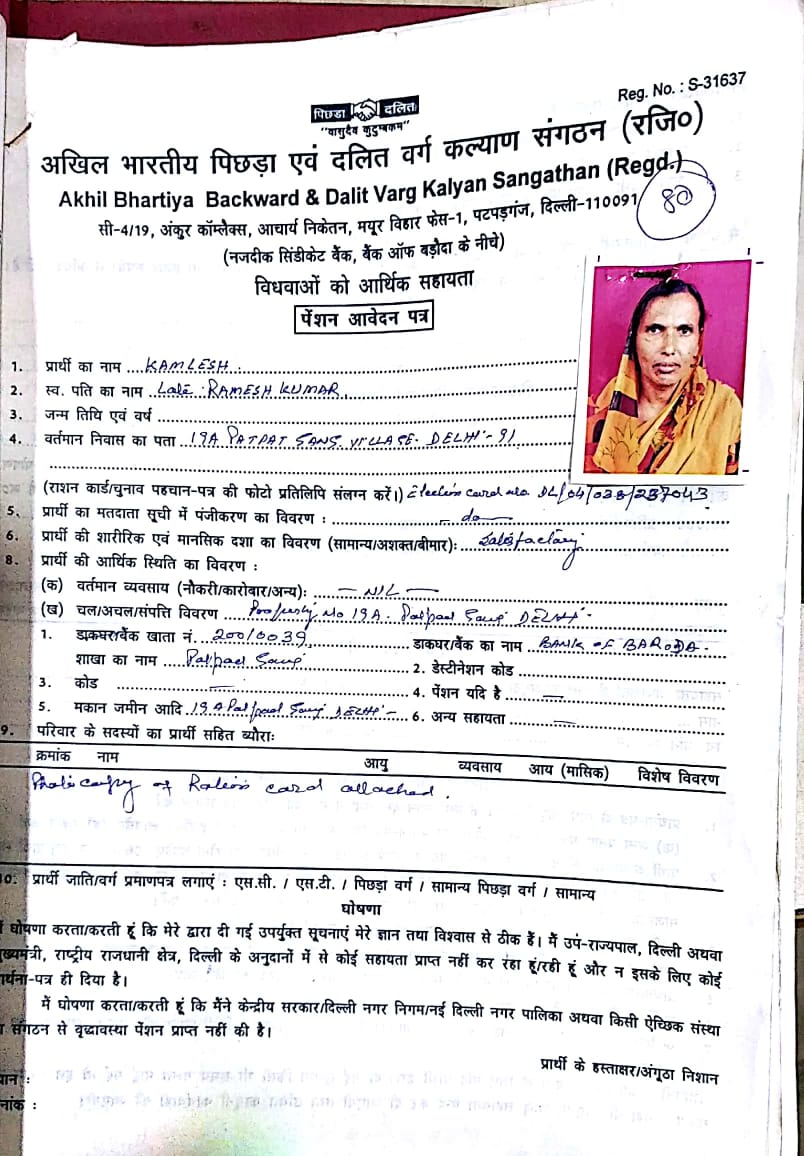 Reg. No. : S-31637
पिछड़ा दलित
"वासुदैव कुटुम्बकम"
अखिल भारतीय पिछड़ा एवं दलित वर्ग कल्याण संगठन (रजि०)
Akhil Bhartiya Backward & Dalit Varg Kalyan Sangathan (Regd.)
सी-4/19, अंकुर कॉम्लैक्स, आचार्य निकेतन, मयूर विहार फेस-1, पटपड़गंज, दिल्ली-110091
80
(नजदीक सिंडीकेट बैंक, बैंक ऑफ बड़ौदा के नीचे)
विधवाओं को आर्थिक सहायता
पेंशन आवेदन पत्र
1. प्रार्थी का नाम ....KAMLESH
2. स्व. पति का नाम ..Late RAMESH KUMAR
3. जन्म तिथि एवं वर्ष
4. वर्तमान निवास का पता ...19A PATPAT GANJ VILLAGE. DELHI-91
(राशन कार्ड/चुनाव पहचान-पत्र की फोटो प्रतिलिपि संलग्न करें।) Election card no. DL/04/038/237043
5. प्रार्थी का मतदाता सूची में पंजीकरण का विवरण : - do -
6. प्रार्थी की शारीरिक एवं मानसिक दशा का विवरण (सामान्य/अशक्त/बीमार): Satisfactory
8. प्रार्थी की आर्थिक स्थिति का विवरण :
(क) वर्तमान व्यवसाय (नौकरी/कारोबार/अन्य): - NIL -
(ख) चल/अचल/संपत्ति विवरण Property No 19A. Patpad Ganj DELHI-
1. डाकघर/बैंक खाता नं. 200/0039 डाकघर/बैंक का नाम BANK OF BARODA.
शाखा का नाम Patpad Ganj 2. डेस्टीनेशन कोड
3. कोड — 4. पेंशन यदि है —
5. मकान जमीन आदि 19A Patpad Ganj DELHI- 6. अन्य सहायता —
9. परिवार के सदस्यों का प्रार्थी सहित ब्यौराः
क्रमांक नाम आयु व्यवसाय आय (मासिक) विशेष विवरण
Photo copy of Ration card attached.
10. प्रार्थी जाति/वर्ग प्रमाणपत्र लगाएं : एस.सी. / एस.टी. / पिछड़ा वर्ग / सामान्य पिछड़ा वर्ग / सामान्य
घोषणा
घोषणा करता/करती हूं कि मेरे द्वारा दी गई उपर्युक्त सूचनाएं मेरे ज्ञान तथा विश्वास से ठीक हैं। मैं उप-राज्यपाल, दिल्ली अथवा
ख्यमंत्री, राष्ट्रीय राजधानी क्षेत्र, दिल्ली के अनुदानों में से कोई सहायता प्राप्त नहीं कर रहा हूं/रही हूं और न इसके लिए कोई
र्थना-पत्र ही दिया है।
में घोषणा करता/करती हूं कि मैंने केन्द्रीय सरकार/दिल्ली नगर निगम/नई दिल्ली नगर पालिका अथवा किसी ऐच्छिक संस्था
संगठन से वृद्धावस्था पेंशन प्राप्त नहीं की है।
प्रार्थी के हस्ताक्षर/अंगूठा निशान
थान :
नांक :